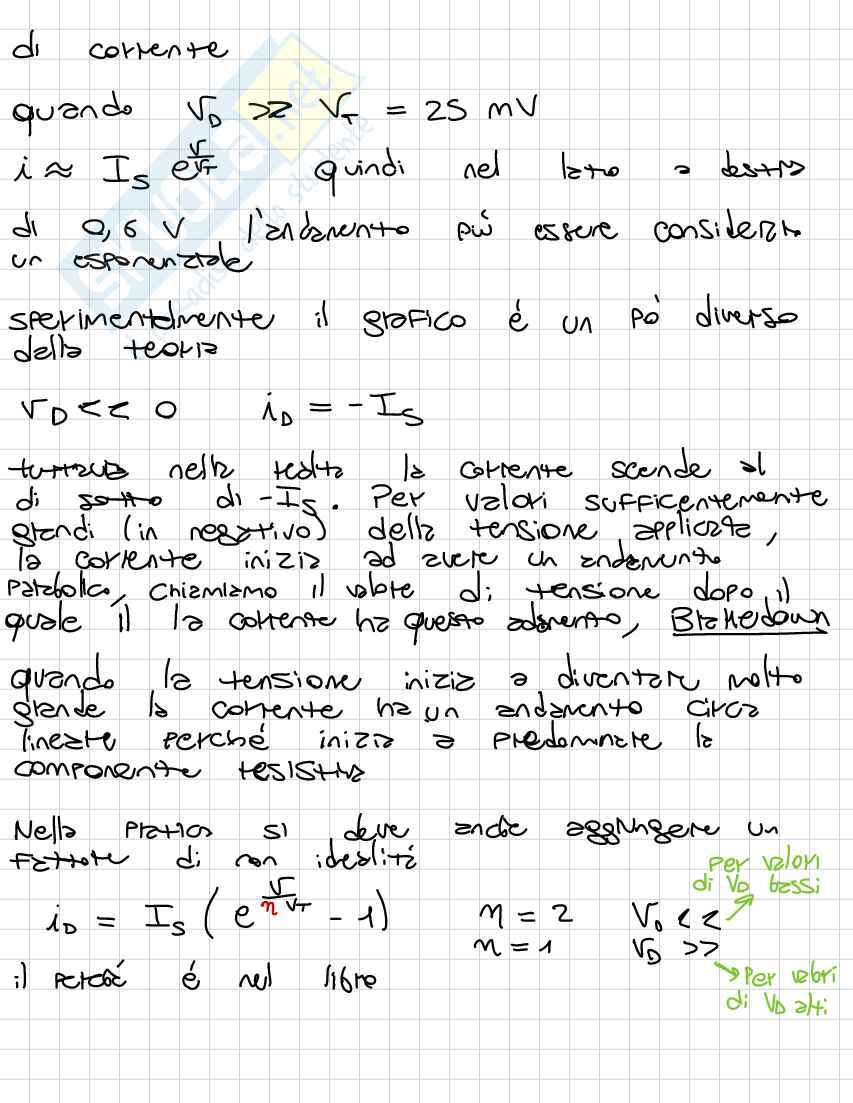 di corrente
quando V_D >> V_T = 25 mV
i ≈ I_S e^(V/V_T) quindi nel lato a destra
di 0,6 V l'andamento può essere considerato
un esponenziale
sperimentalmente il grafico é un pò diverso
dalla teoria
V_D << 0 i_D = - I_S
tuttavia nella realtà la corrente scende al
di sotto di -I_S. Per valori sufficentemente
grandi (in negativo) della tensione applicata,
la corrente inizia ad avere un andamento
parabolico, chiamiamo il valore di tensione dopo il
quale il la corrente ha questo adamento, Brakedown
quando la tensione inizia a diventare molto
grande la corrente ha un andamento circa
lineare perché inizia a predominare la
componente resistiva
Nella pratica si deve anche aggiungere un
fattore di non idealitá
per valori
di V_D bassi
i_D = I_S ( e^(V/(n V_T)) - 1) n = 2 V_D <<
n = 1 V_D >>
il perché é nel libro
Per valori
di V_D alti
skuola.net